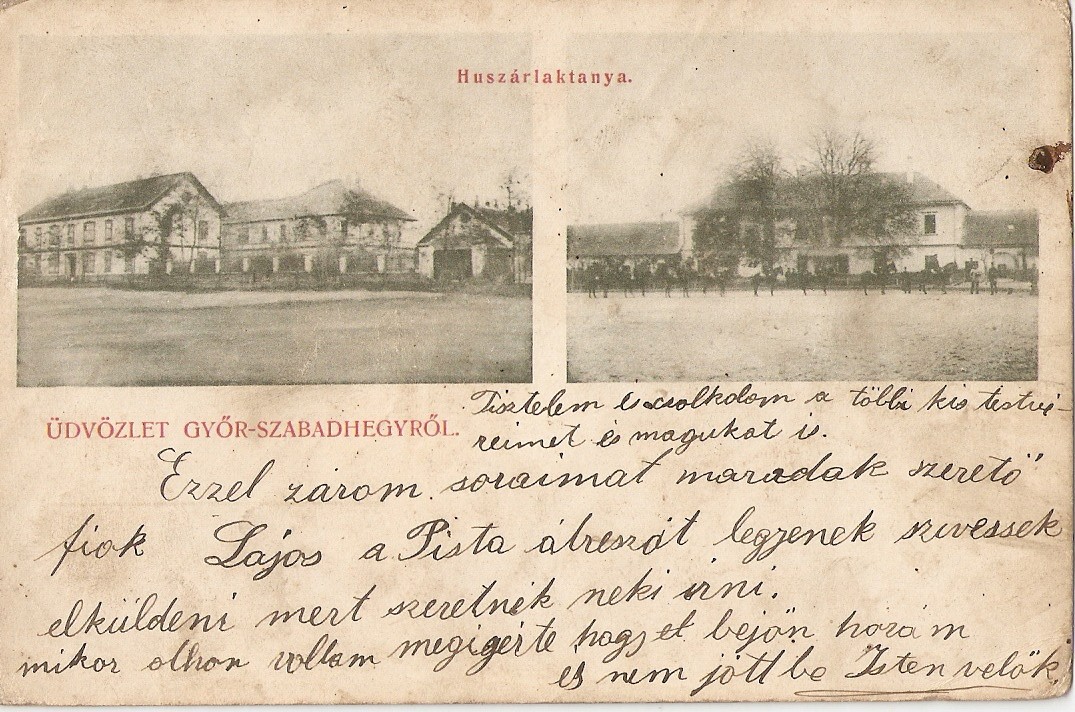 Huszárlaktanya.
ÜDVÖZLET GYŐR-SZABADHEGYRŐL.
Tisztelem és csolkolom a többi kis testvé-
reimet és magukat is.
Ezzel zárom soraimat maradak szerető
fiok Lajos a Pista átreszát legyenek szivessek
elküldeni mert szeretnék neki irni.
mikor othon voltam megigérte hogy bejön hozám
és nem jött be Isten velők.